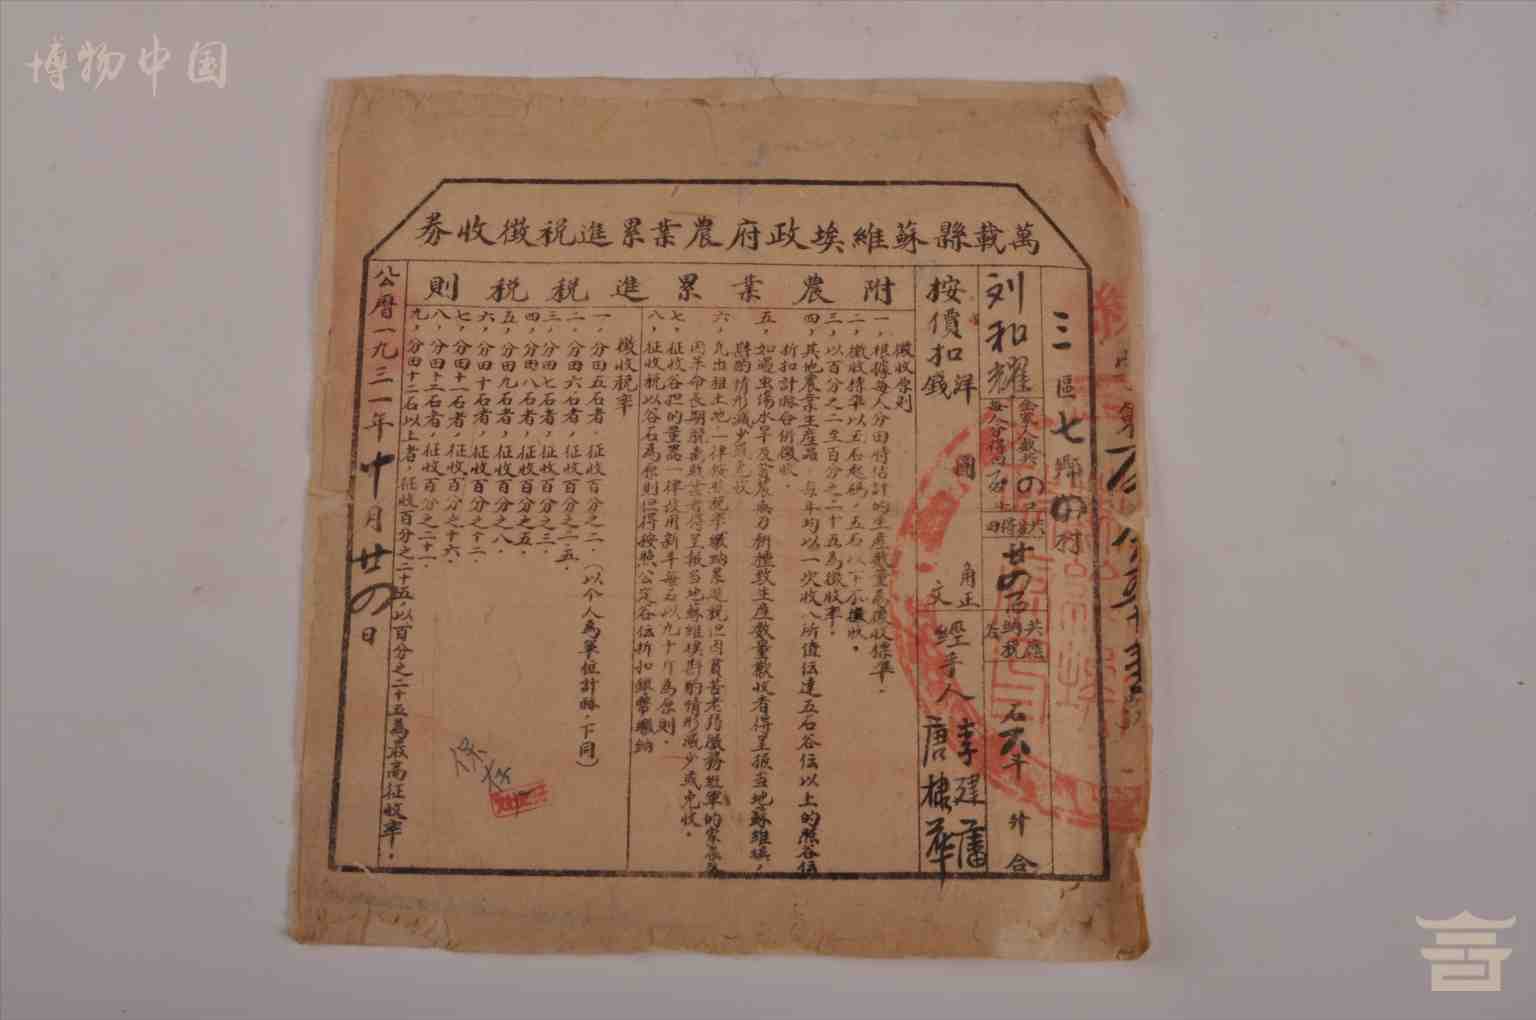 博物中国
萬載縣蘇維埃政府農業累進税徵收券
三區七鄉四村
刘和耀
全家人數共四口
每人分得田
共計得田
廿四石
共應納税谷
石六斗
升合
按價扣洋
錢
圓
角正
文
經手人
李建藩
唐棣華
附農業累進税税則
徵收原則
一，根據每人分田時估計的生產數量為徵收標準．
二，徵收標準以五石起碼，五石以下不徵收．
三，以百分之二至百分之二十五為徵收率．
四，其他農業生產品，每年均以一次收入所值估達五石谷伝以上的照谷伝
折扣計略合併徵收．
五，如遇虫傷水旱及
生產數量歉收者得呈报当地蘇維埃，
斟酌情形減少或免收
六，凡出租土地一律按照税率繳納累進税但因貧苦老弱殘務红軍的家屬及
因革命長期脱離
者得呈报当地蘇維埃斟酌情形減少或免收．
七，征收谷担的量器一律改用新平每石以九十斤為原則．
八，征收税以谷石為原則但得按照公定谷伝折扣銀幣繳納
徵收税率
一，分田五石者，征收百分之二．（以个人為單位計略．下同）
二．分田六石者，征收百分之二．五．
三，分田七石者，征收百分之三．
四，分田八石者，征收百分之五．
五，分田九石者，征收百分之八．
六，分田十石者，征收百分之十二．
七，分田十一石者，征收百分之十六．
八，分田十二石者，征收百分之二十一．
九，分田十二石以上者，征收百分之二十五，以百分之二十五為最高征收率．
公曆一九三一年十月廿四日